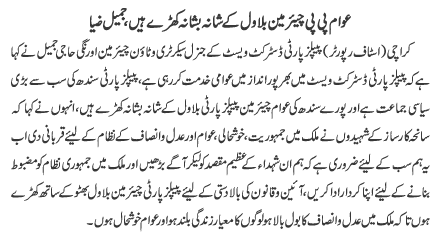 عوام پی پی چیئرمین بلاول کے شانہ بشانہ کھڑے ہیں، جمیل ضیا
کراچی (اسٹاف رپورٹر) پیپلز پارٹی ڈسٹرکٹ ویسٹ کے جنرل سیکرٹری و ٹاؤن چیئرمین اورنگی حاجی جمیل نے کہا
ہے کہ پیپلز پارٹی ڈسٹرکٹ ویسٹ میں بھرپور انداز میں عوامی خدمت کررہی ہے، پیپلز پارٹی سندھ کی سب سے بڑی
سیاسی جماعت ہے اور پورے سندھ کی عوام چیئرمین پیپلز پارٹی بلاول کے شانہ بشانہ کھڑے ہیں، انہوں نے کہا کہ
سانحہ کارساز کے شہیدوں نے ملک میں جمہوریت، خوشحالی، عوام اور عدل و انصاف کے نظام کے لیئے قربانی دی اب
یہ ہم سب کے لیئے ضروری ہے کہ ہم ان شہداء کے عظیم مقصد کو لیکر آگے بڑھیں اور ملک میں جمہوری نظام کو مضبوط
بنانے کے لیئے اپنا کردار ادا کریں، آئین و قانون کی بالادستی کے لیئے پیپلز پارٹی چیئرمین بلاول بھٹو کے ساتھ کھڑے
ہوں تاکہ ملک میں عدل و انصاف کا بول بالا ہو لوگوں کا معیار زندگی بلند ہو اور عوام خوشحال ہوں۔